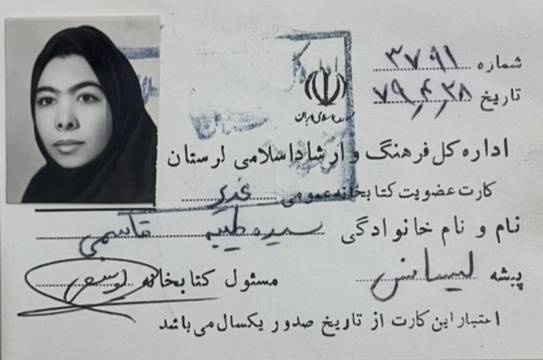 شماره ۳۷۹۱
تاریخ ۷۹,۴,۲۸
اداره کل فرهنگ و ارشاد اسلامی لرستان
کارت عضویت کتابخانه عمومی غدیر
نام و نام خانوادگی سیده طیبه قاسمی
پیشه لیسانس مسئول کتابخانه
اعتبار این کارت از تاریخ صدور یکسال می باشد